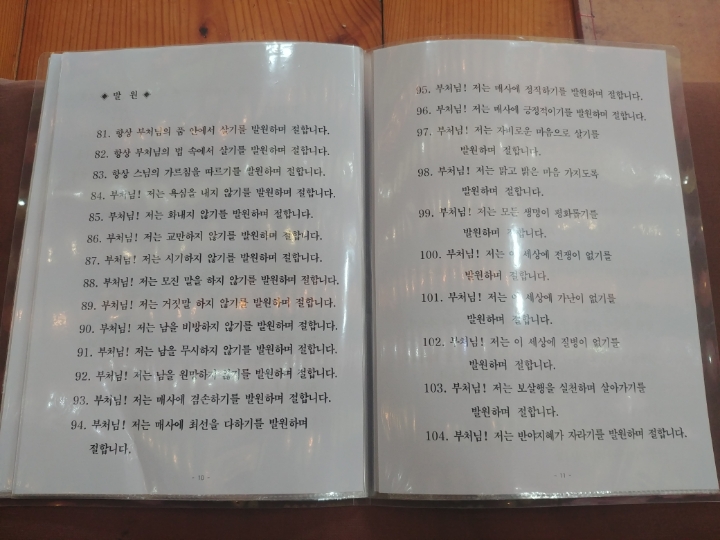 ◈ 발 원 ◈
81. 항상 부처님의 품 안에서 살기를 발원하며 절합니다.
82. 항상 부처님의 법 속에서 살기를 발원하며 절합니다.
83. 항상 스님의 가르침을 따르기를 발원하며 절합니다.
84. 부처님! 저는 욕심을 내지 않기를 발원하며 절합니다.
85. 부처님! 저는 화내지 않기를 발원하며 절합니다.
86. 부처님! 저는 교만하지 않기를 발원하며 절합니다.
87. 부처님! 저는 시기하지 않기를 발원하며 절합니다.
88. 부처님! 저는 모진 말을 하지 않기를 발원하며 절합니다.
89. 부처님! 저는 거짓말 하지 않기를 발원하며 절합니다.
90. 부처님! 저는 남을 비방하지 않기를 발원하며 절합니다.
91. 부처님! 저는 남을 무시하지 않기를 발원하며 절합니다.
92. 부처님! 저는 남을 원망하지 않기를 발원하며 절합니다.
93. 부처님! 저는 매사에 겸손하기를 발원하며 절합니다.
94. 부처님! 저는 매사에 최선을 다하기를 발원하며
절합니다.
- 10 -
95. 부처님! 저는 매사에 정직하기를 발원하며 절합니다.
96. 부처님! 저는 매사에 긍정적이기를 발원하며 절합니다.
97. 부처님! 저는 자비로운 마음으로 살기를
발원하며 절합니다.
98. 부처님! 저는 맑고 밝은 마음 가지도록
발원하며 절합니다.
99. 부처님! 저는 모든 생명이 평화롭기를
발원하며 절합니다.
100. 부처님! 저는 이 세상에 전쟁이 없기를
발원하며 절합니다.
101. 부처님! 저는 이 세상에 가난이 없기를
발원하며 절합니다.
102. 부처님! 저는 이 세상에 질병이 없기를
발원하며 절합니다.
103. 부처님! 저는 보살행을 실천하며 살아가기를
발원하며 절합니다.
104. 부처님! 저는 반야지혜가 자라기를 발원하며 절합니다.
- 11 -